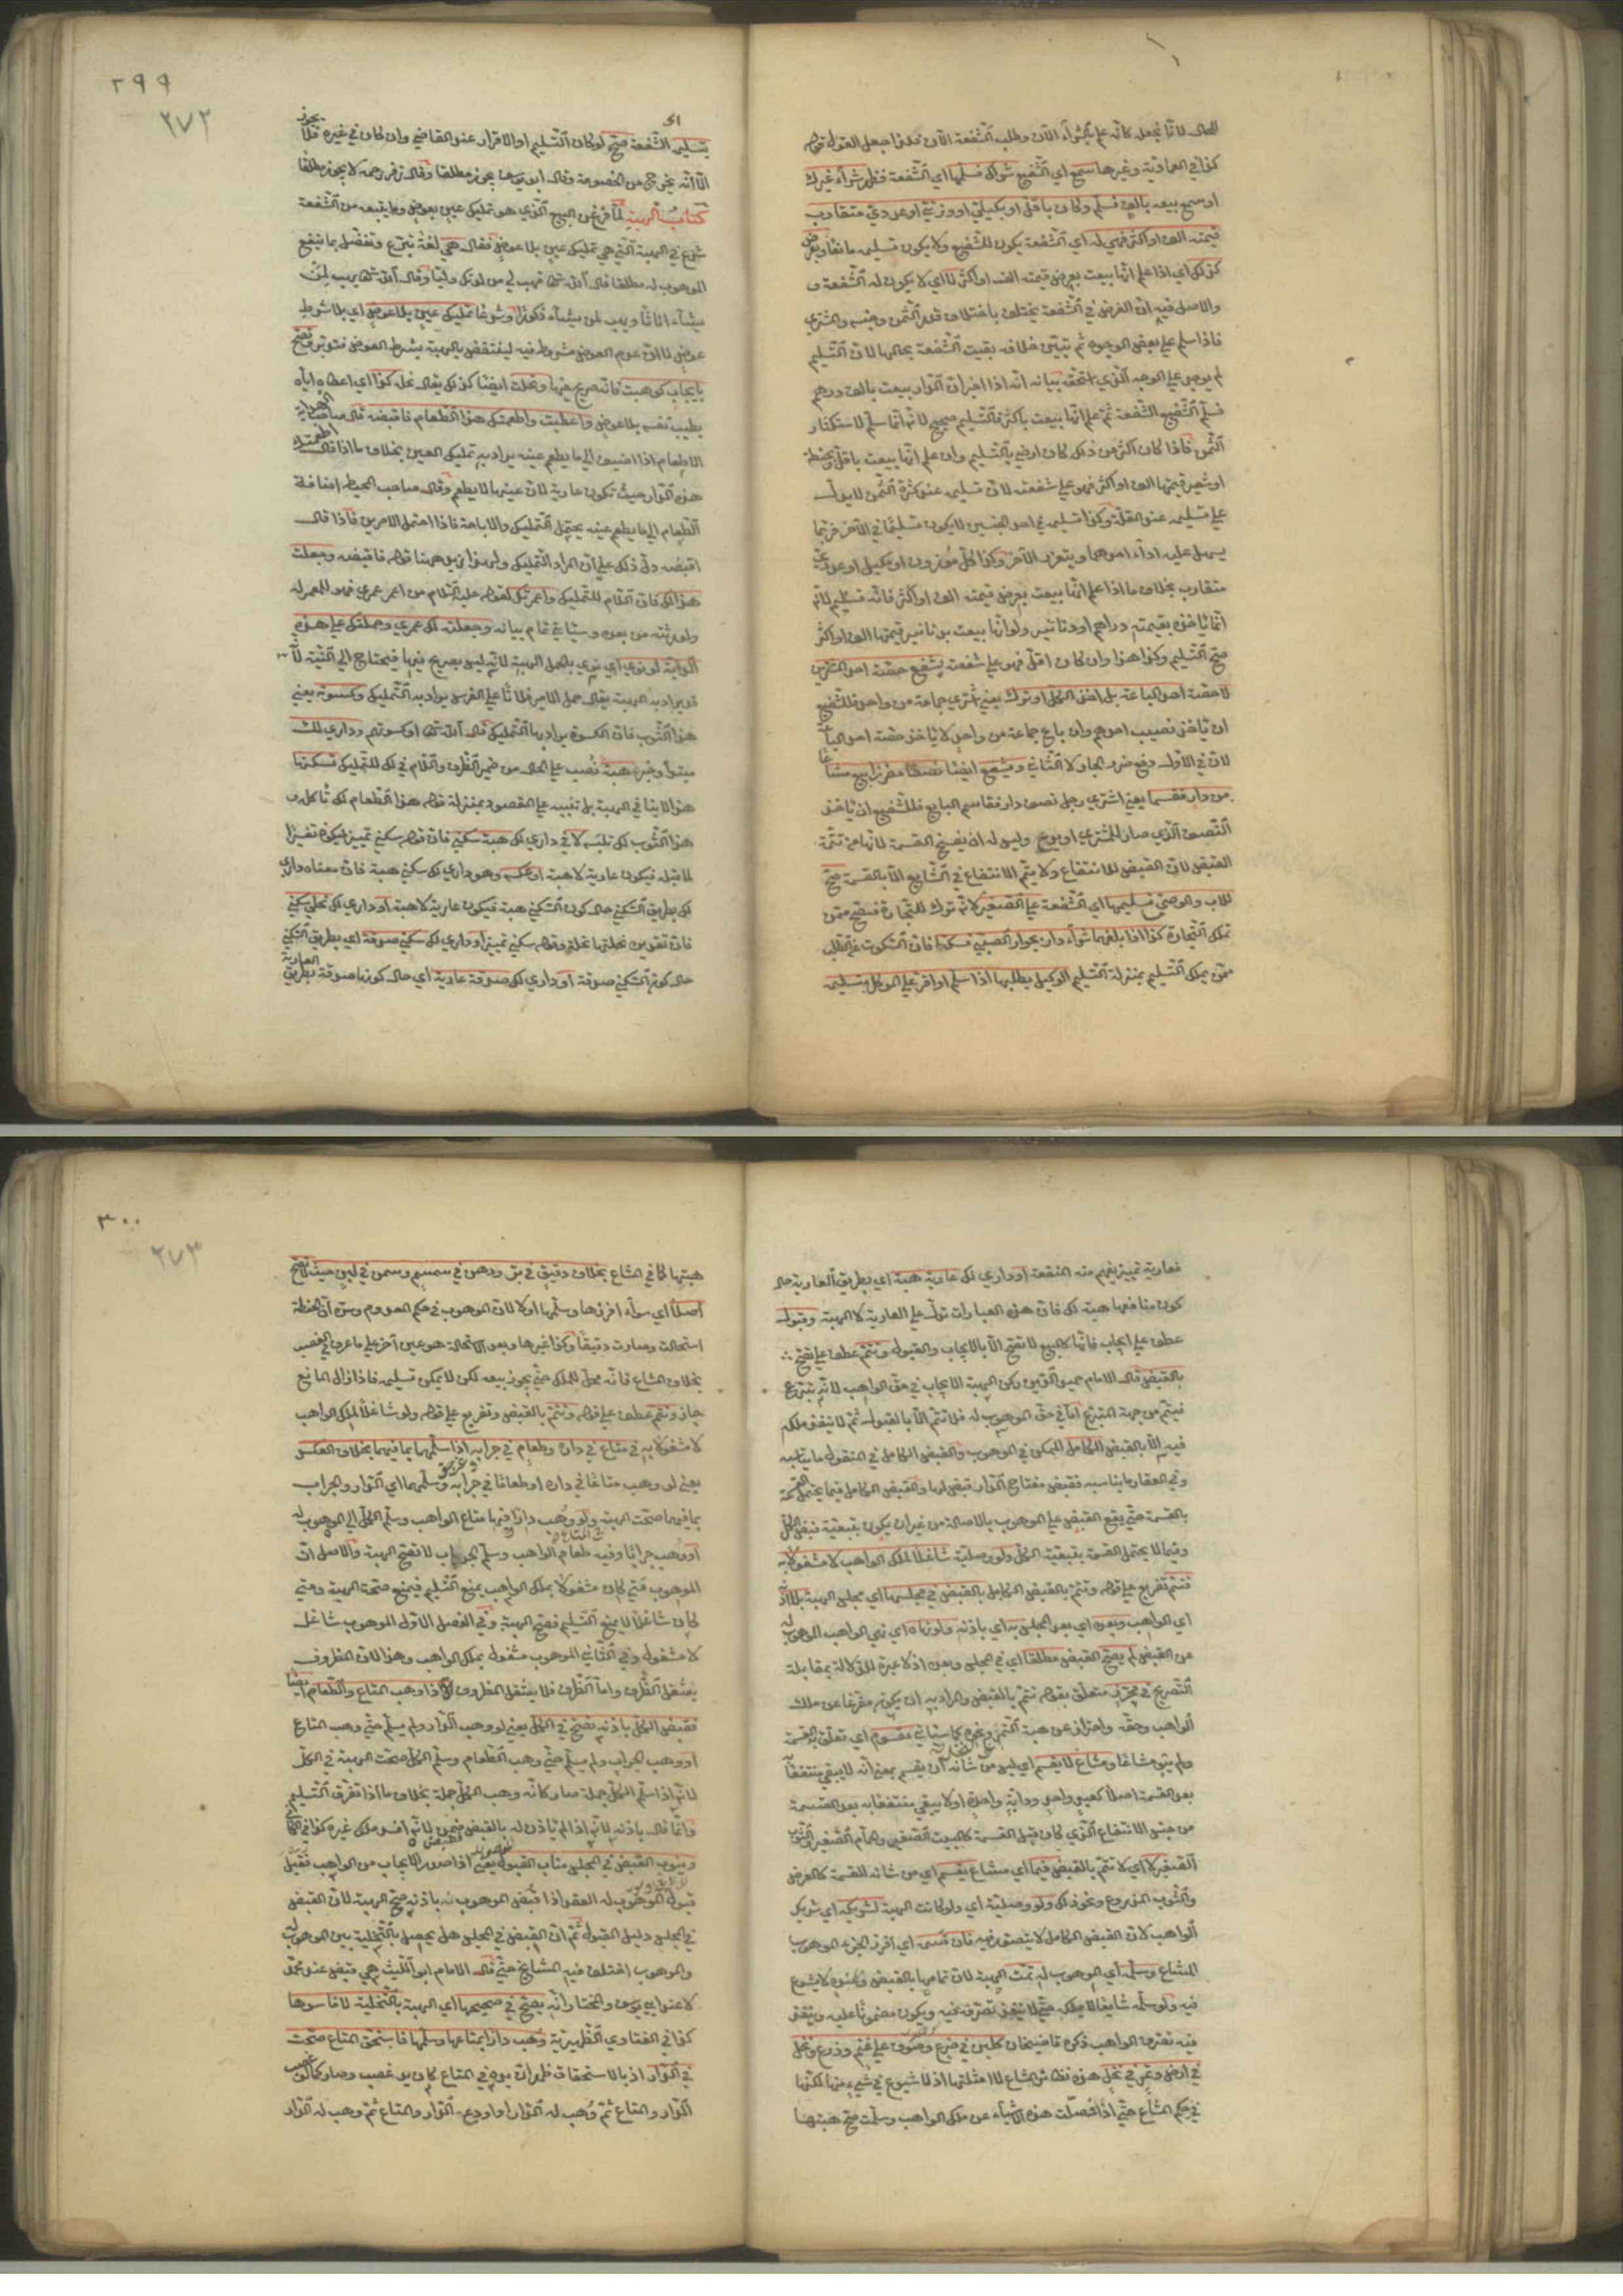 للحال لانا نجعل كانه علم بالشراء الآن وطلب الشفعة الآن
كذا في العمادية وغيرها سمع اي الشفيع شراءك فسلمها اي الشفعة فظهر شراء غيرك
او سمع بيعه بالف فسلم وكان باقل او بكيلي او وزني او عددي متقارب
قيمته الف او اكثر فهي له اي الشفعة يكون للشفيع ولا يكون تسليمه مانعا وبعرض
كذلك اي اذا علم انها بيعت بعرض قيمته الف او اكثر لا اي لا يكون له الشفعة و
والاصل فيه ان الغرض في الشفعة يختلف باختلاف قدر الثمن وجنسه والمشتري
فاذا سلم على بعض الوجوه ثم تبين خلافه بقيت الشفعة بحالها لان التسليم
لم يوجد على الوجه الذي بيانه انه اذا اخبر ان الدار بيعت بالف درهم
فسلم الشفيع الشفعة ثم علم انها بيعت باكثر فالتسليم صحيح لانه انما سلم لاستكثار
الثمن فاذا كان اكثر من ذلك كان ارضى بالتسليم وان علم انها بيعت باقل او بحنطة
او شعير قيمتها الف او اكثر فهو على شفعته لان تسليمه عند كثرة الثمن لا يدل
على تسليمه عند القلة وكذا تسليمه في احد الجنسين لا يكون تسليما في الآخر فربما
يسهل عليه اداء احدهما ويتعذر الآخر وكذا كل موزون او مكيل او عددي
متقارب بخلاف ما اذا علم انها بيعت بعرض قيمته الف او اكثر فانه تسليم لانه
انما ياخذه بقيمته دراهم او دنانير ولو انها بيعت بدنانير قيمتها الف او اكثر
صح التسليم وكذا هذا وان كان اقل فهو على شفعته يشفع حصة احد المشترين
لا حصة احد الباعة بل اخذ الكل او ترك يعني اشترى جماعة من واحد فللشفيع
ان ياخذ نصيب احدهم وان باع جماعة من واحد لا ياخذ حصة احد البا
لان في الاول دفع ضرر الجار لا الثاني ويشفع ايضا نصفا مفرزا بيع مشاعا
من دار فقسما يعني اشترى رجل نصف دار فقاسم البايع فللشفيع ان ياخذ
النصف الذي صار للمشتري او يدع وليس له ان يفسخ القسمة لانها من تتمة
القبض لان القبض للانتفاع ولا يتم الانتفاع في الشايع الا بالقسمة صح
للاب والوصي تسليمها اي الشفعة على الصغير لانه ترك للتجارة فيصح ممن
تملك التجارة كذا اذا بلغهما شراء دار بجوار الصبي فسكتا فان السكوت عن الطلب
ممن يملك التسليم بمنزلة التسليم الوكيل بطلبها اذا سلم او اقر على الموكل بتسليمه
٢٩٩
٢٧٢
بتسليمه الشفعة صح لو كان التسليم او الاقرار عند القاضي وان كان في غيره فلا يجوز
الا انه يخرج من الخصومة وقال ابو يوسف يجوز مطلقا وقال زفر رحمه لا يجوز مطلقا
كتاب الهبة لما فرغ من البيع الذي هو تمليك عين بعوض وما يتبعه من الشفعة
شرع في الهبة التي هي تمليك عين بلا عوض فقال هي لغة تبرع وتفضل بما ينفع
الموهوب له مطلقا قال الله تعالى فهب لي من لدنك وليا وقال الله تعالى يهب لمن
يشاء اناثا ويهب لمن يشاء ذكورا وشرعا تمليك عين بلا عوض اي بلا شرط
عوض لا ان عدم العوض مشروط فيه لينتقض بالهبة بشرط العوض فتدبر وتصح
بايجاب كوهبت فانه صريح فيها ونحلت ايضا كذلك يقال نحله كذا اي اعطاه اياه
بطيب نفسه بلا عوض واعطيت واطعمتك هذا الطعام فاقبضه قال صاحب الهداية
الاطعام اذا اضيف الى ما يطعم عينه يراد به تمليك العين بخلاف ما اذا قال اطعمتك
هذه الدار حيث تكون عارية لان عينها لا يطعم وقال صاحب المحيط اضافة
الطعام الى ما يطعم عينه يحتمل التمليك والاباحة فاذا احتمل الامرين فاذا قال
اقبضه دل ذلك على ان المراد التمليك ولهذا زيد ههنا قوله فاقبضه وجعلت
هذا لك فان اللام للتمليك واعمرتك لقوله عليه السلام من اعمر عمرى فهو للمعمر له
ولورثته من بعده وسياتي تمام بيانه وجعلته لك عمرى وحملتك على هذه
الدابة لو نوى اي نوى بالحمل الهبة لانه ليس بصريح فيها فيحتاج الى النية
قد يراد به الهبة يقال حمل الامير فلانا على الفرس يراد به التمليك وكسوته يعني
هذا الثوب فان الكسوة يراد بها التمليك قال الله تعالى او كسوتهم وداري لك
مبتدأ وخبره هبة نصب على الحال من ضمير الظرف واللام في لك للتمليك تسكنها
هذا لا ينافي الهبة بل تنبيه على المقصود بمنزلة قوله هذا الطعام لك تاكله و
هذا الثوب لك تلبسه لا في داري لك هبة سكنى فان قوله سكنى تمييز فيكون تفسيرا
لما قبله فيكون عارية لا هبة او عكسه وهو داري لك سكنى هبة فان معناه داري
لك بطريق السكنى حال كون السكنى هبة فيكون عارية لا هبة او داري لك نحلى سكنى
فان تقديره نحلتها نحلة وقوله سكنى تمييز او داري لك سكنى صدقة اي بطريق السكنى
حال كون السكنى صدقة او داري لك صدقة عارية اي حال كونها صدقة بطريق العارية
فعارية تمييز يفهم منه المنفعة او داري لك عارية هبة اي بطريق العارية حال
كون منافعها هبة لك فان هذه العبارات تدل على العارية لا الهبة وقبول
عطف على ايجاب فانها كالبيع لا تصح الا بالايجاب والقبول وتتم عطف على تصح
بالقبض قال الامام حميد الدين ركن الهبة الايجاب في حق الواهب لانه تبرع
فيتم من جهة المتبرع اما في حق الموهوب له فلا تتم الا بالقبول ثم لا ينفذ ملكه
فيه الا بالقبض الكامل الممكن في الموهوب والقبض الكامل في المنقول ما يناسبه
وفي العقار ما يناسبه فقبض مفتاح الدار قبض لها والقبض الكامل فيما يحتمل القسمة
بالقسمة حتى يقع القبض على الموهوب بالاصالة من غير ان يكون بتبعية قبض الكل
وفيما لا يحتمل القسمة بتبعية الكل ولو وصلية شاغلا لملك الواهب لا مشغولا به
فتتم تفريع على قوله وتتم بالقبض الكامل بالقبض في مجلسها اي مجلس الهبة بلا اذنه
اي الواهب وبعده اي بعد المجلس به اي باذنه ولو نهاه اي نهى الواهب الموهوب له
عن القبض لم يصح القبض مطلقا اي في المجلس وبعده اذ لا عبرة للدلالة بمقابلة
التصريح في محوز متعلق بقوله تتم بالقبض والمراد به ان يكون مفرغا عن ملك
الواهب وحقه واحترز عن هبة الثمر ونحوه كما سياتي مقسوم اي تعلق به القسمة
ولم يبق مشاعا ومشاع لا يقسم اي ليس من شانه ان يقسم بمعنى انه لا يبقى منتفعا
بعد القسمة اصلا كعبد واحد ودابة واحدة او لا يبقى منتفعا به بعد القسمة
من جنس الانتفاع الذي كان قبل القسمة كالبيت الصغير والحمام الصغير والثوب
الصغير لا اي لا تتم بالقبض فيما اي مشاع يقسم اي من شانه القسمة كالارض
والثوب المذروع ونحو ذلك ولو وصلية اي ولو كانت الهبة لشريكه اي شريك
الواهب لان القبض الكامل لا يتصور فيه فان قسمه اي افرز الجزء الموهوب
المشاع وسلمه اي الموهوب له تمت الهبة لان تمامها بالقبض وعنده لا شيوع
فيه ولو سلمه شايعا لا يملكه حتى لا ينفذ تصرفه فيه ويكون مضمونا عليه وينفذ
فيه تصرف الواهب ذكره قاضيخان كلبن في ضرع وصوف على غنم وزرع ونخل
في ارض وثمر في نخل هذه نظائر المشاع لا امثلتها اذ لا شيوع في شيء منها لكنها
في حكم المشاع حتى اذا فصلت هذه الاشياء عن ملك الواهب وسلمت صح هبتها
٣٠٠
٢٧٣
هبتها كما في المشاع بخلاف دقيق في بر ودهن في سمسم وسمن في لبن حيث لا تصح
اصلا اي سواء افرزها وسلمها او لا لان الموهوب في حكم المعدوم وسره ان الحنطة
استحالت وصارت دقيقا وكذا غيرها وبعد الاستحالة هو عين آخر على ما عرف في الغصب
بخلاف المشاع فانه محل للملك حتى يجوز بيعه لكن لا يمكن تسليمه فاذا زال المانع
جاز وتتم عطف على قوله وتتم بالقبض وتفريع على قوله ولو شاغلا لملك الواهب
لا مشغولا به في متاع في داره وطعام في جرابه اذا سلمها بما فيهما بخلاف العكس
يعني لو وهب متاعا في داره او طعاما في جرابه وسلمهما اي الدار والجراب
بما فيهما صحت الهبة ولو وهب دارا فيها متاع الواهب وسلم الكل الى الموهوب له
او وهب جرابا وفيه طعام الواهب وسلم الجراب لا تصح الهبة والاصل ان
الموهوب متى كان مشغولا بملك الواهب يمنع التسليم فيمنع صحة الهبة ومتى
كان شاغلا لا يمنع التسليم فتصح الهبة وفي الفصل الاول الموهوب شاغل
لا مشغول وفي الثاني الموهوب مشغول بملك الواهب وهذا لان المظروف
يشغل الظرف واما الظرف فلا يشغل المظروف اذا وهب المتاع والطعام ايضا
فقبض الكل باذنه تصح في الكل يعني لو وهب الدار ولم يسلم حتى وهب المتاع
او وهب الجراب ولم يسلم حتى وهب الطعام وسلم الكل صحت الهبة في الكل
لانه اذا سلم الكل جملة صار كانه وهب الكل جملة بخلاف ما اذا تفرق التسليم
وانما قال باذنه لانه اذا لم ياذن له بالقبض ضمن لانه افسد ملك غيره كذا في
وينوب القبض في المجلس مناب القبول يعني اذا صدر الايجاب من الواهب فقبل
قبول الموهوب له العقد اذا قبض الموهوب به باذنه صح الهبة لان القبض
في المجلس دليل القبول ثم ان القبض في المجلس هل يحصل بالتخلية بين الموهوب له
والموهوب اختلف فيه المشايخ حتى قال الامام ابو الليث هي قبض عند محمد
لا عند ابي يوسف والمختار انه يصح في صحيحها اي الهبة بالتخلية لا فاسدها
كذا في الفتاوى الظهيرية وهب دارا بمتاعها وسلمها فاستحق المتاع صحت
في الدار اذ بالاستحقاق ظهر ان يده في المتاع كان يد غصب وصار كما لو غصب
الدار والمتاع ثم وهب له الدار او اودعه الدار والمتاع ثم وهب له الدار